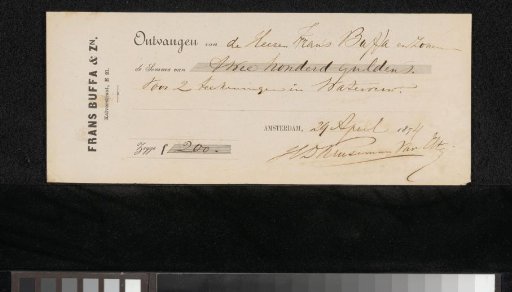 FRANS BUFFA & ZN.
Kalverstraat, N 21.
Ontvangen van de Heeren Frans Buffa en Zonen
de Somma van Twee honderd guldens.
voor 2 teekeningen in Waterverw.
AMSTERDAM, 29 April 1874
Zegge f 200.
HD Kruseman Van Elt